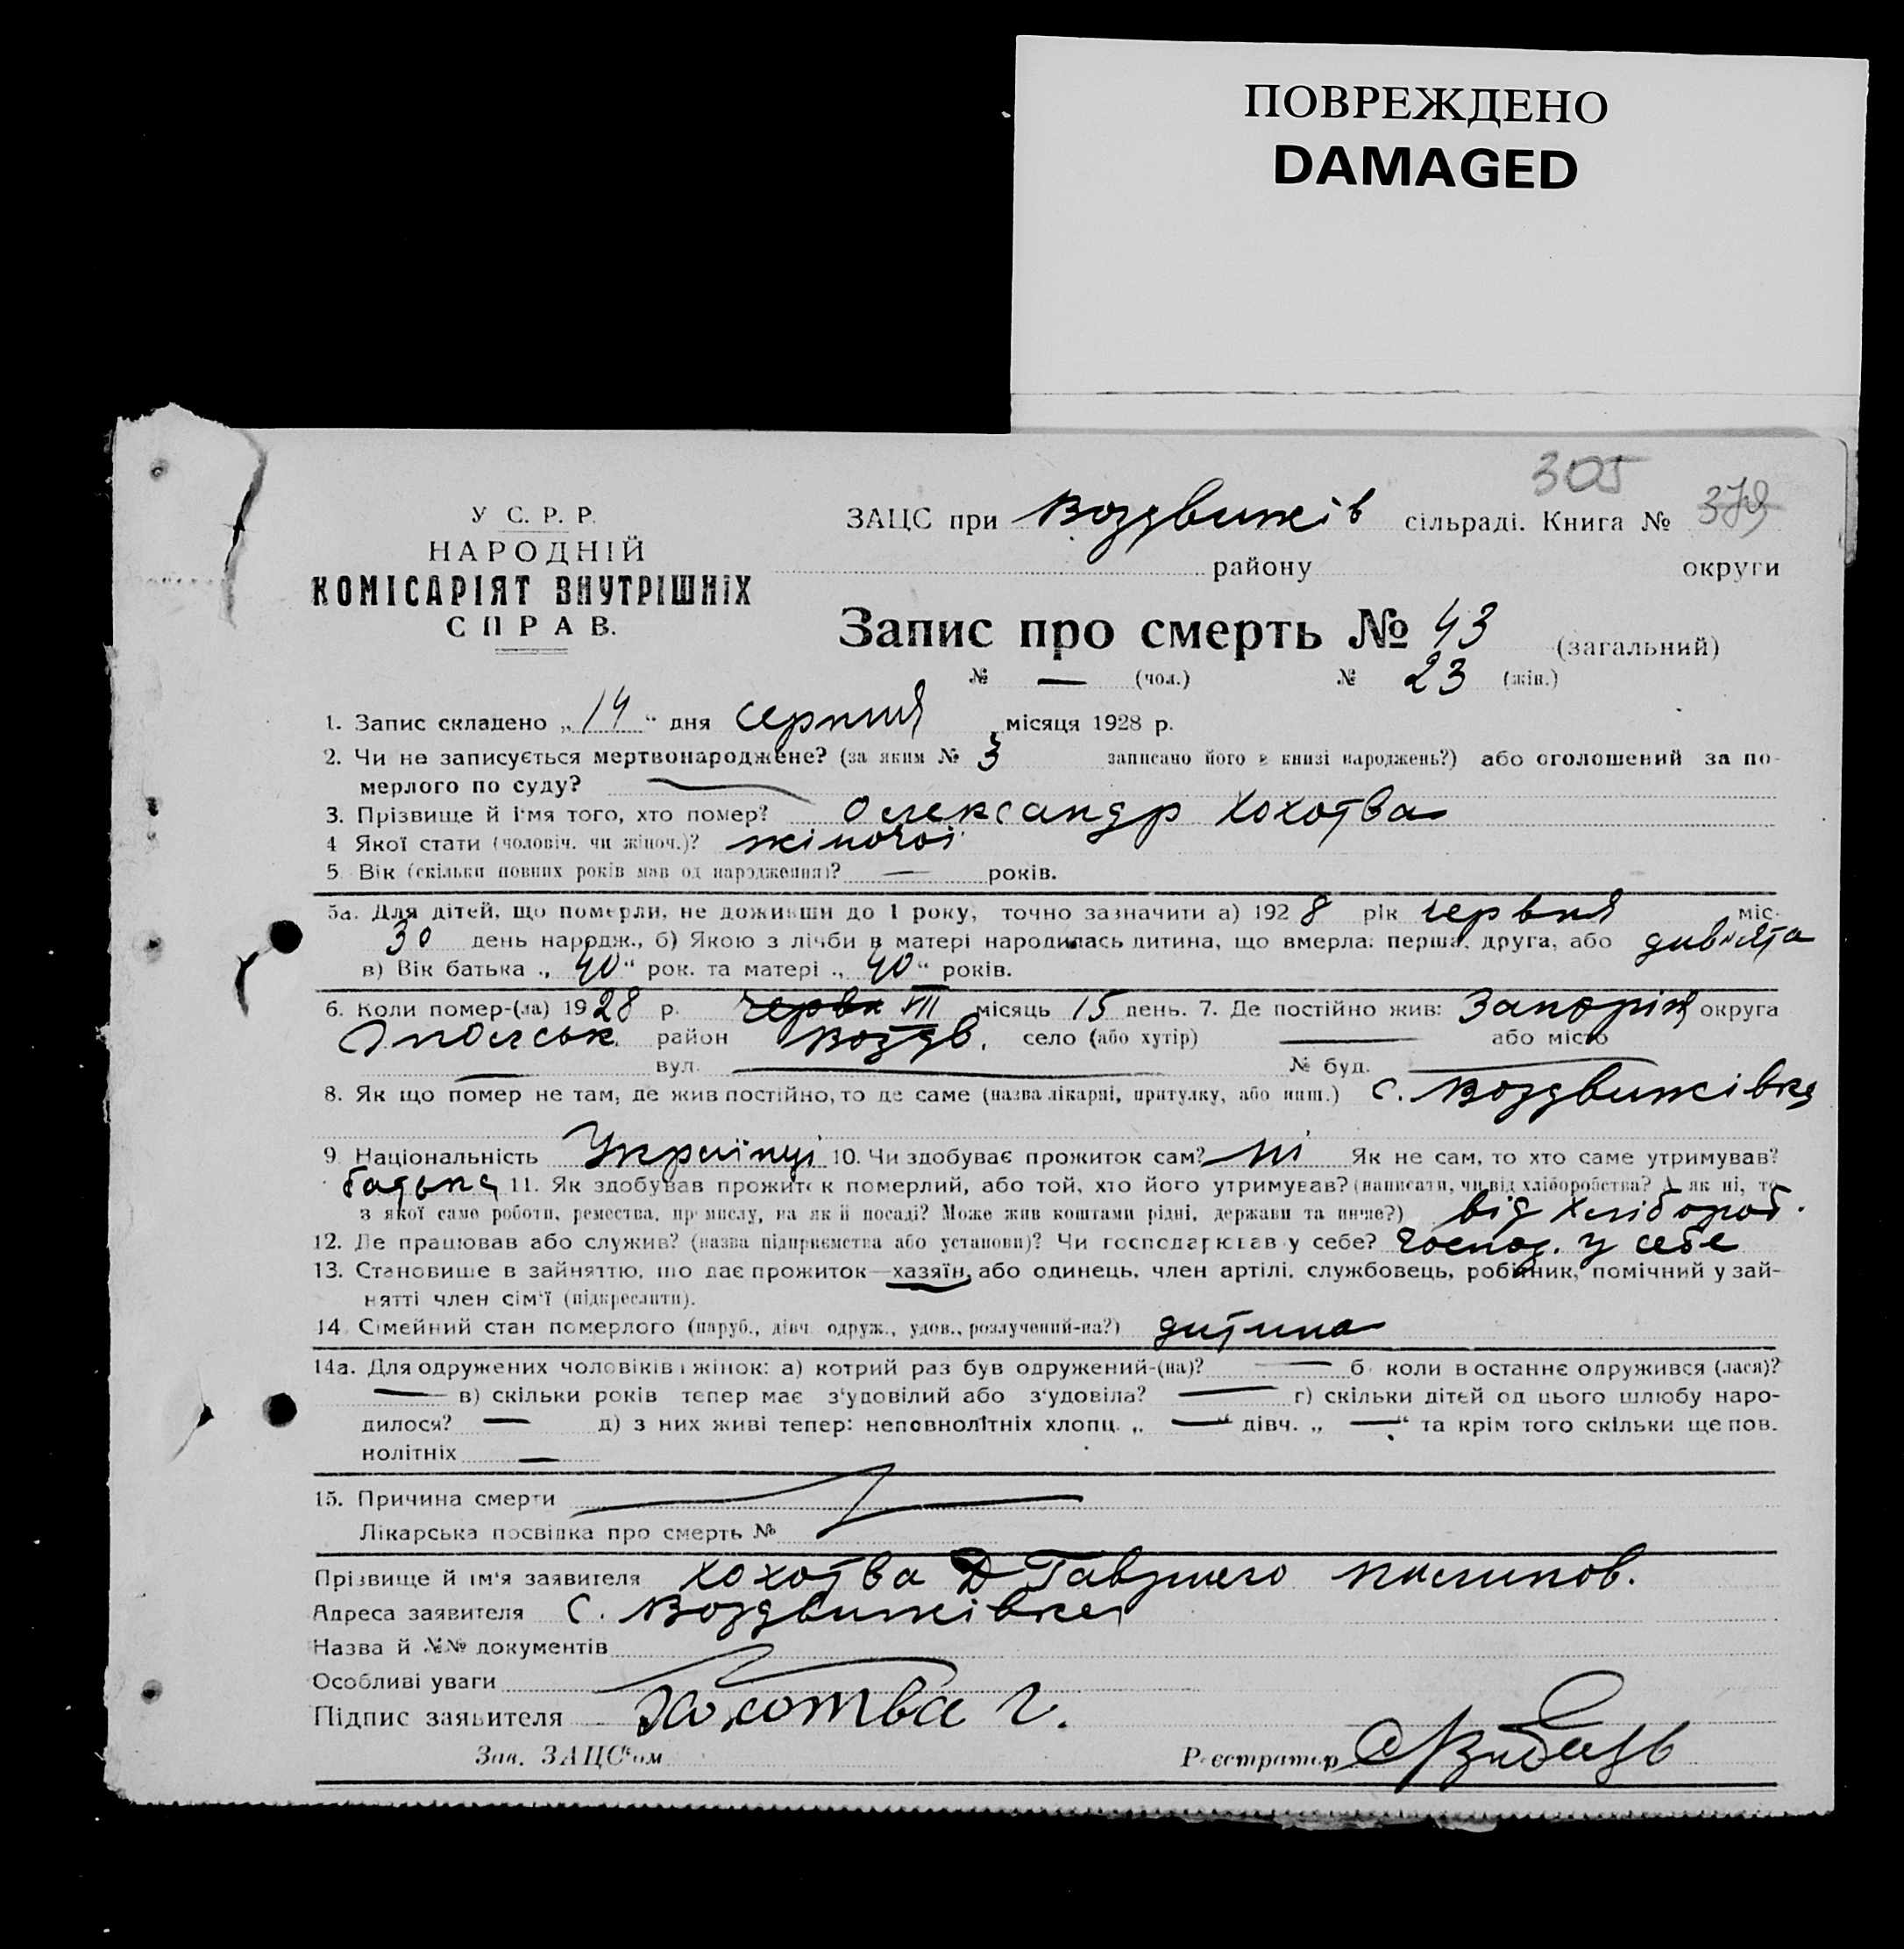 ПОВРЕЖДЕНО
DAMAGED
305
У С. Р. Р.
НАРОДНІЙ
КОМІСАРІЯТ ВНУТРІШНІХ
СПРАВ.
ЗАЦС при Воздвижів сільраді. Книга № 379
району округи
Запис про смерть № 43 (загальний)
№ — (чол.) № 23 (жін.)
1. Запис складено „14“ дня серпня місяця 1928 р.
2. Чи не записується мертвонароджене? (за яким № 3 записано його в книзі народжень?) або оголошений за по-
мерлого по суду? —
3. Прізвище й ім'я того, хто помер? Олександр Хохотва
4 Якої стати (чоловіч. чи жіноч.)? жіночої
5. Вік (скільки повних років мав од народження)? — років.
5а. Для дітей, що померли, не доживши до 1 року, точно зазначити а) 1928 рік червня міс.
30 день народж., б) Якою з лічби в матері народилась дитина, що вмерла: перша, друга, або дивьята
в) Вік батька „40“ рок. та матері „40“ років.
6. Коли помер-(ла) 1928 р. червн VII місяць 15 день. 7. Де постійно жив: Запоріж округа
район Воздв. село (або хутір) — або місто
— вул. — № буд. —
8. Як що помер не там, де жив постійно, то де саме (назва лікарні, притулку, або инш.) с. Воздвижівка
9. Національність Українці 10. Чи здобуває прожиток сам? ні Як не сам, то хто саме утримував?
батько 11. Як здобував прожиток померлий, або той, хто його утримував? (написати, чи від хліборобства? А як ні, то
з якої саме роботи, ремества, промислу, на якій посаді? Може жив коштами рідні, держави та инше?) від хлібороб.
12. Де працював або служив? (назва підприємства або установи)? Чи господарював у себе? Господ. у себе
13. Становище в зайняттю, що дає прожиток—хазяїн, або одинець, член артілі, службовець, робітник, помічний у зай-
нятті член сім'ї (підкреслити).
14. Сімейний стан померлого (паруб., дівч. одруж., удов., розлучений-на?) дитина
14а. Для одружених чоловіків і жінок: а) котрий раз був одружений-(на)? — б) коли в останнє одружився (лася)?
— в) скільки років тепер має з'удовілий або з'удовіла? — г) скільки дітей од цього шлюбу наро-
дилося? — д) з них живі тепер: неповнолітніх хлопц. „—“ дівч. „—“ та крім того скільки ще пов.
нолітніх —
15. Причина смерти —
Лікарська посвідка про смерть №
Прізвище й ім'я заявителя Хохотва Гаврило
Адреса заявителя с. Воздвижівка
Назва й №№ документів
Особливі уваги
Підпис заявителя Хохотва Г.
Зав. ЗАЦС'ом Реєстратор